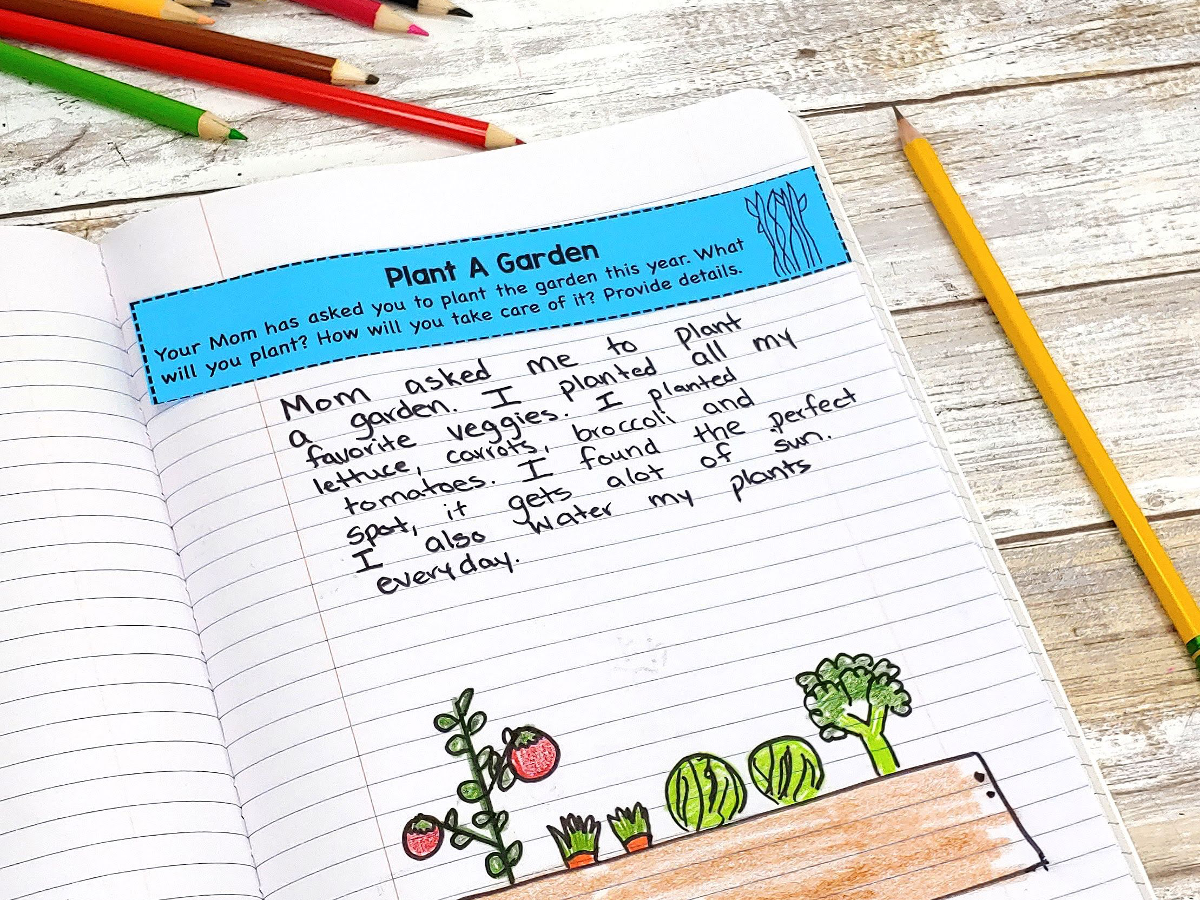 Plant A Garden
Your Mom has asked you to plant the garden this year. What
will you plant? How will you take care of it? Provide details.
Mom asked me to plant
a garden. I planted all my
favorite veggies. I planted
lettuce, carrots, broccoli and
tomatoes. I found the perfect
spot, it gets alot of sun.
I also water my plants
everyday.